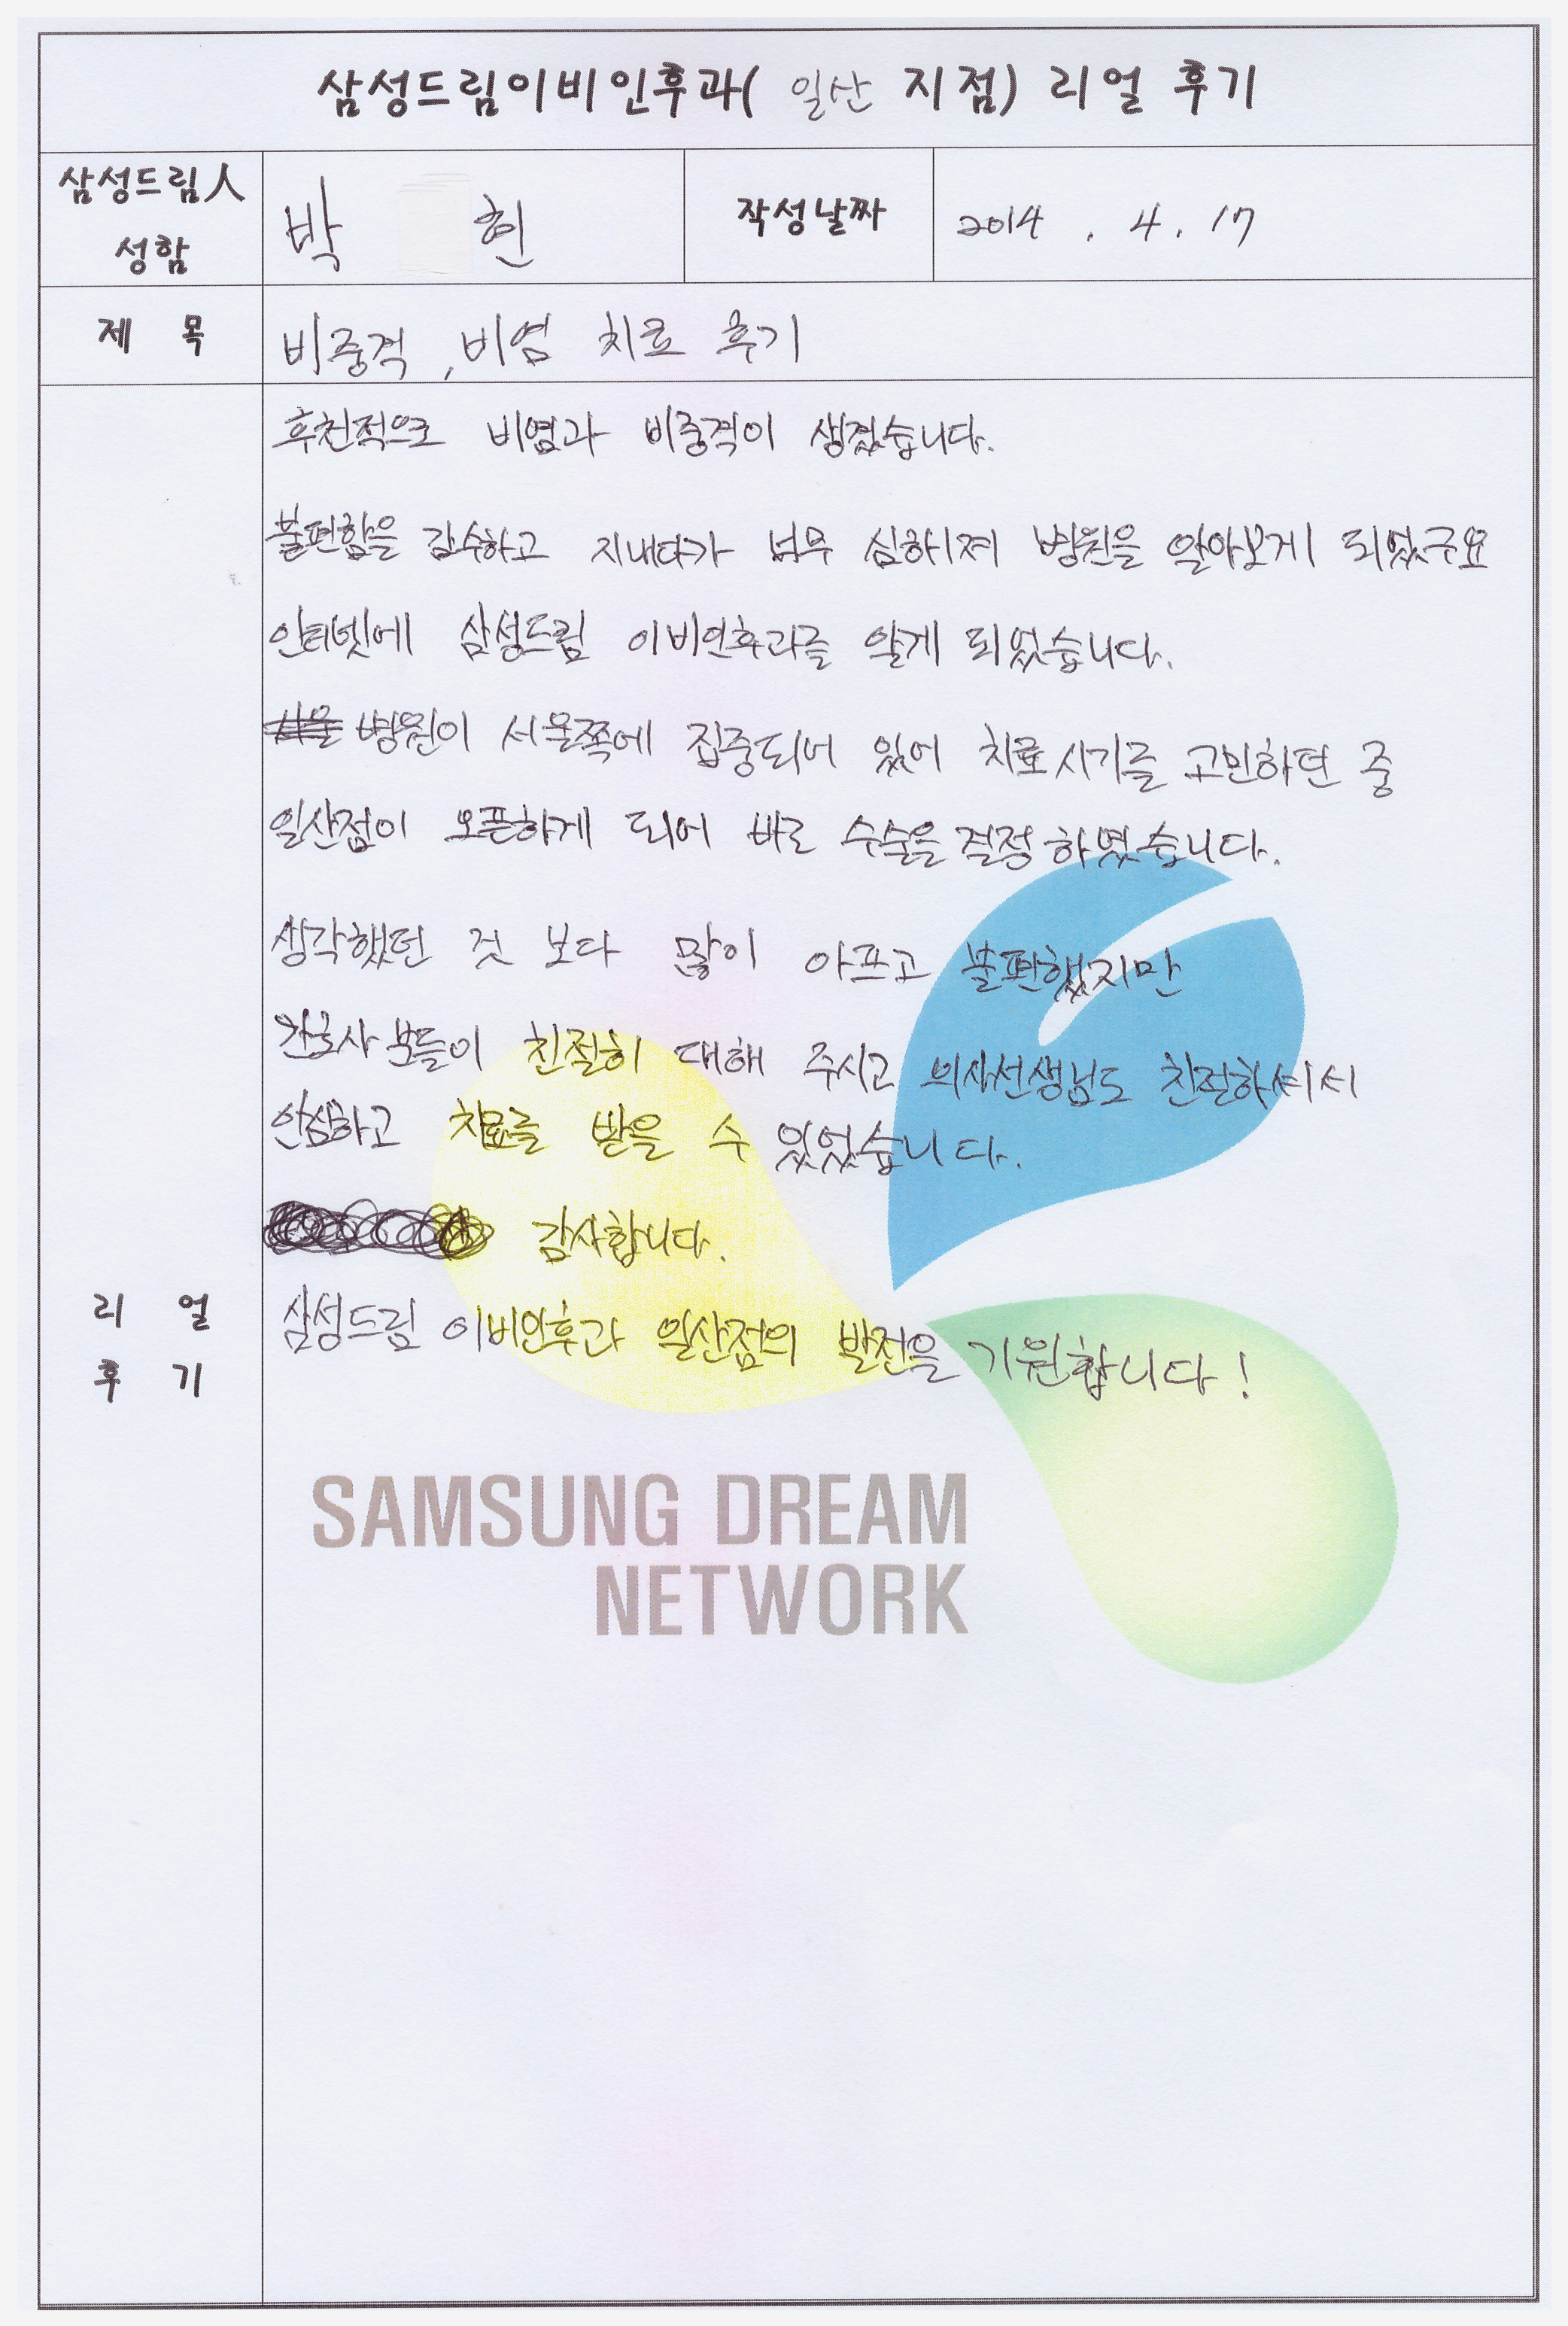 삼성드림이비인후과( 일산 지점) 리얼 후기
삼성드림人
성함
박 현
작성날짜
2014 . 4 . 17
제 목
비중격 , 비염 치료 후기
후천적으로 비염과 비중격이 생겼습니다.
불편함을 감수하고 지내다가 너무 심해져 병원을 알아보게 되었구요
인터넷에 삼성드림 이비인후과를 알게 되었습니다.
병원이 서울쪽에 집중되어 있어 치료시기를 고민하던 중
일산점이 오픈하게 되어 바로 수술을 결정하였습니다.
생각했던 것 보다 많이 아프고 불편했지만
간호사분들이 친절히 대해 주시고 의사선생님도 친절하셔서
안심하고 치료를 받을 수 있었습니다.
감사합니다.
삼성드림 이비인후과 일산점의 발전을 기원합니다!
리 얼
후 기
SAMSUNG DREAM
NETWORK